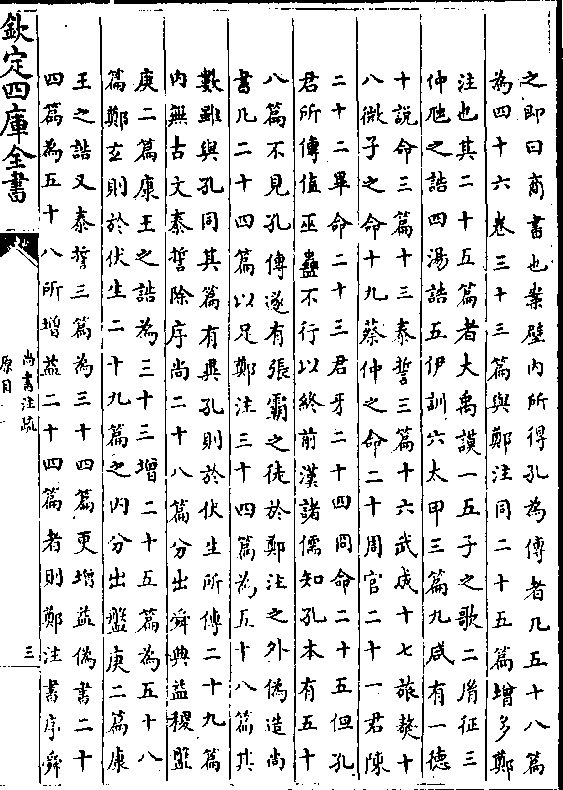 之即曰商書也案壁内所得孔為傳者凡五十八篇
為四十六卷三十三篇與鄭注同二十五篇增多鄭
注也其二十五篇者大禹謨一五子之歌二𦙍征三
仲虺之誥四湯誥五伊訓六太甲三篇九咸有一德
十說命三篇十三泰誓三篇十六武成十七旅獒十
八微子之命十九蔡仲之命二十周官二十一君陳
二十二畢命二十三君牙二十四冏命二十五但孔
君所傳值巫蠱不行以終前漢諸儒知孔本有五十
八篇不見孔傳遂有張霸之徒於鄭注之外偽造尚
書凡二十四篇以足鄭注三十四篇為五十八篇其
數雖與孔同其篇有異孔則於伏生所傳二十九篇
内無古文泰誓除序尚二十八篇分出舜典益稷盤
庚二篇康王之誥為三十三增二十五篇為五十八
篇鄭𤣥則於伏生二十九篇之内分出盤庚二篇康
王之誥又泰誓三篇為三十四篇更增益偽書二十
四篇為五十八所增益二十四篇者則鄭注書序舜
欽定四庫全書
尚書注疏
原目
三